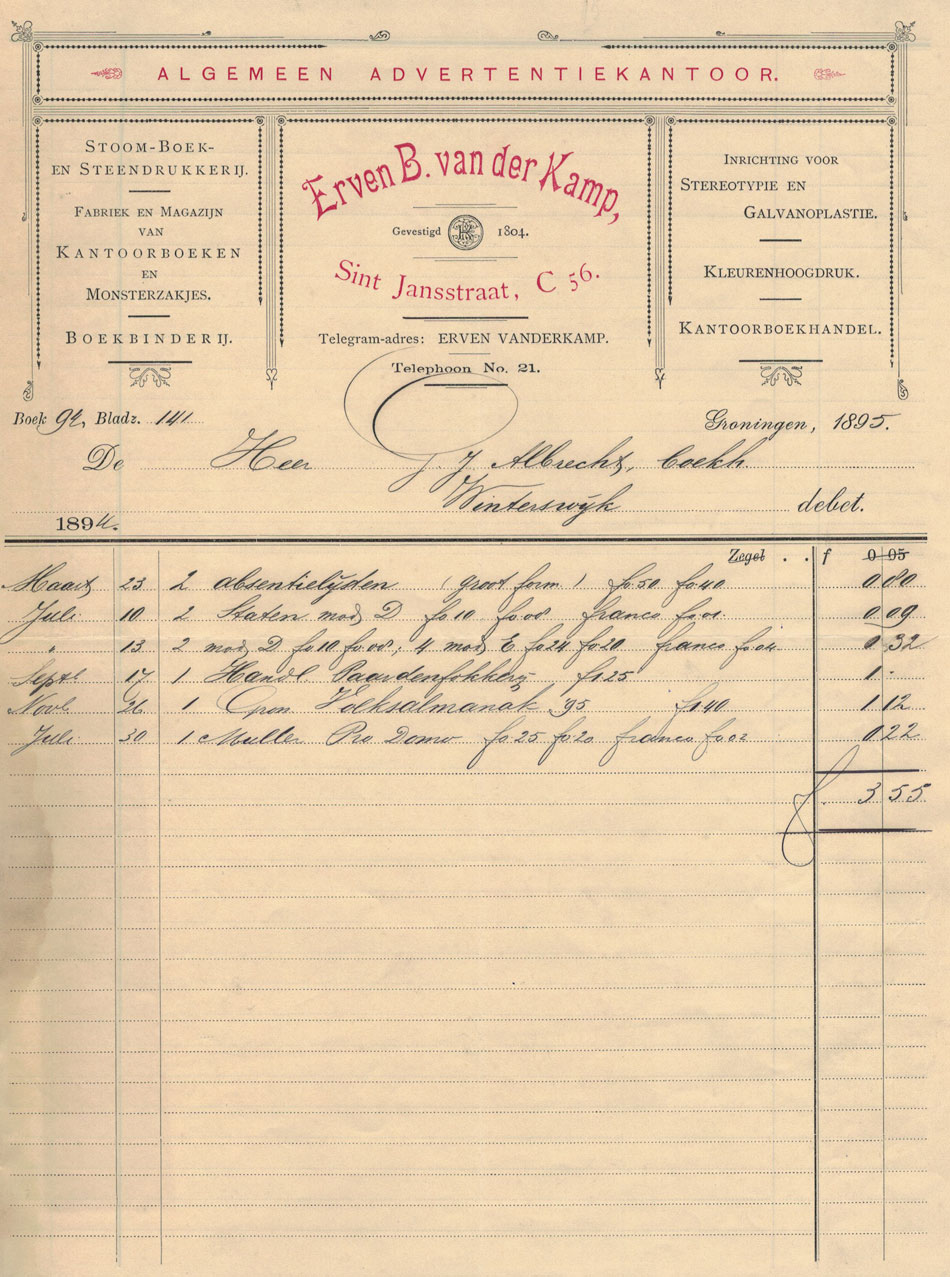 ALGEMEEN ADVERTENTIEKANTOOR.
STOOM-BOEK-
EN STEENDRUKKERIJ.
FABRIEK EN MAGAZIJN
VAN
KANTOORBOEKEN
EN
MONSTERZAKJES.
BOEKBINDERIJ.
Erven B. van der Kamp,
Gevestigd 1804.
Sint Jansstraat, C 56.
Telegram-adres: ERVEN VANDERKAMP.
Telephoon No. 21.
INRICHTING VOOR
STEREOTYPIE EN
GALVANOPLASTIE.
KLEURENHOOGDRUK.
KANTOORBOEKHANDEL.
Boek 94, Bladz. 141
Groningen, 1895.
De Heer J. J. Albrecht, boekh.
Winterswijk debet.
1894.
Zegel . . f 0 05
Maart 23 2 absentielijsten (groot form) f0.50 f0.40 0 80
Juli 10 2 Staten mod. D f0.10 f0.08 franco f0.01 0 09
" 13 2 mod. D f0.10 f0.08; 4 mod. E f0.24 f0.20 franco f0.04 0 32
Sept. 17 1 Handl. Paardenfokkerij f1.25 1 -
Nov. 26 1 Gron. Volksalmanak 95 f1.40 1 12
Juli 30 1 Muller Pro Domo f0.25 f0.20 franco f0.02 0 22
f. 3 55